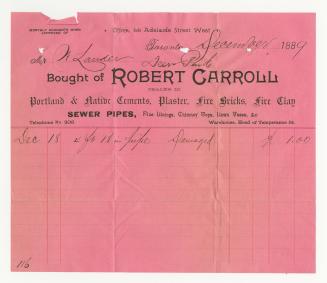 MONTHLY ACCOUNTS WHEN
APPROVED OF
Office, Adelaide Street West
Toronto, December 1889
Mr W Lauder
Bought of ROBERT CARROLL
DEALER IN
Portland & Native Cements, Plaster, Fire Bricks, Fire Clay
SEWER PIPES, Flue Linings, Chimney Tops, Lawn Vases, &c
Telephone No. Warehouse, Head of Temperance St.
Dec 18 18 in pipe Damaged 1.00
116